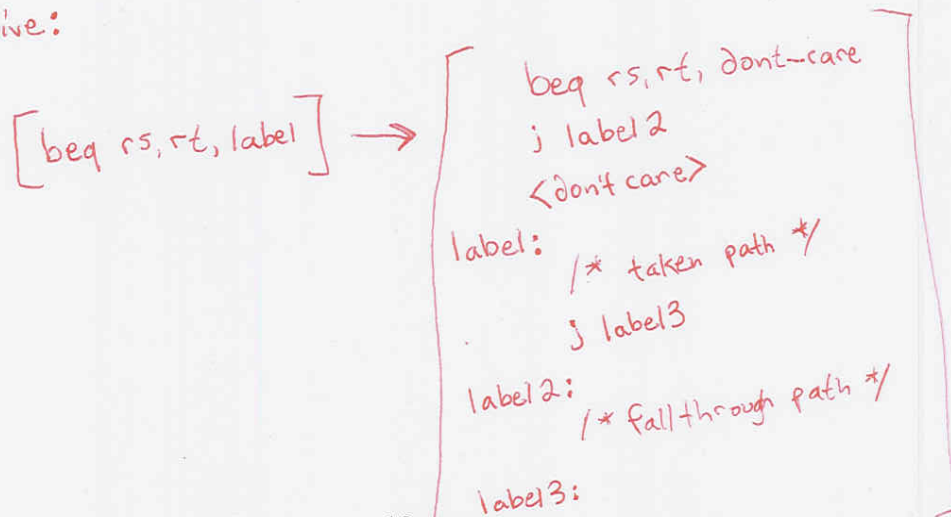 ive:
[beq rs, rt, label] → [beq rs, rt, dont-care
j label2
<don't care>
label:
/* taken path */
j label3
label2:
/* fallthrough path */
label3: